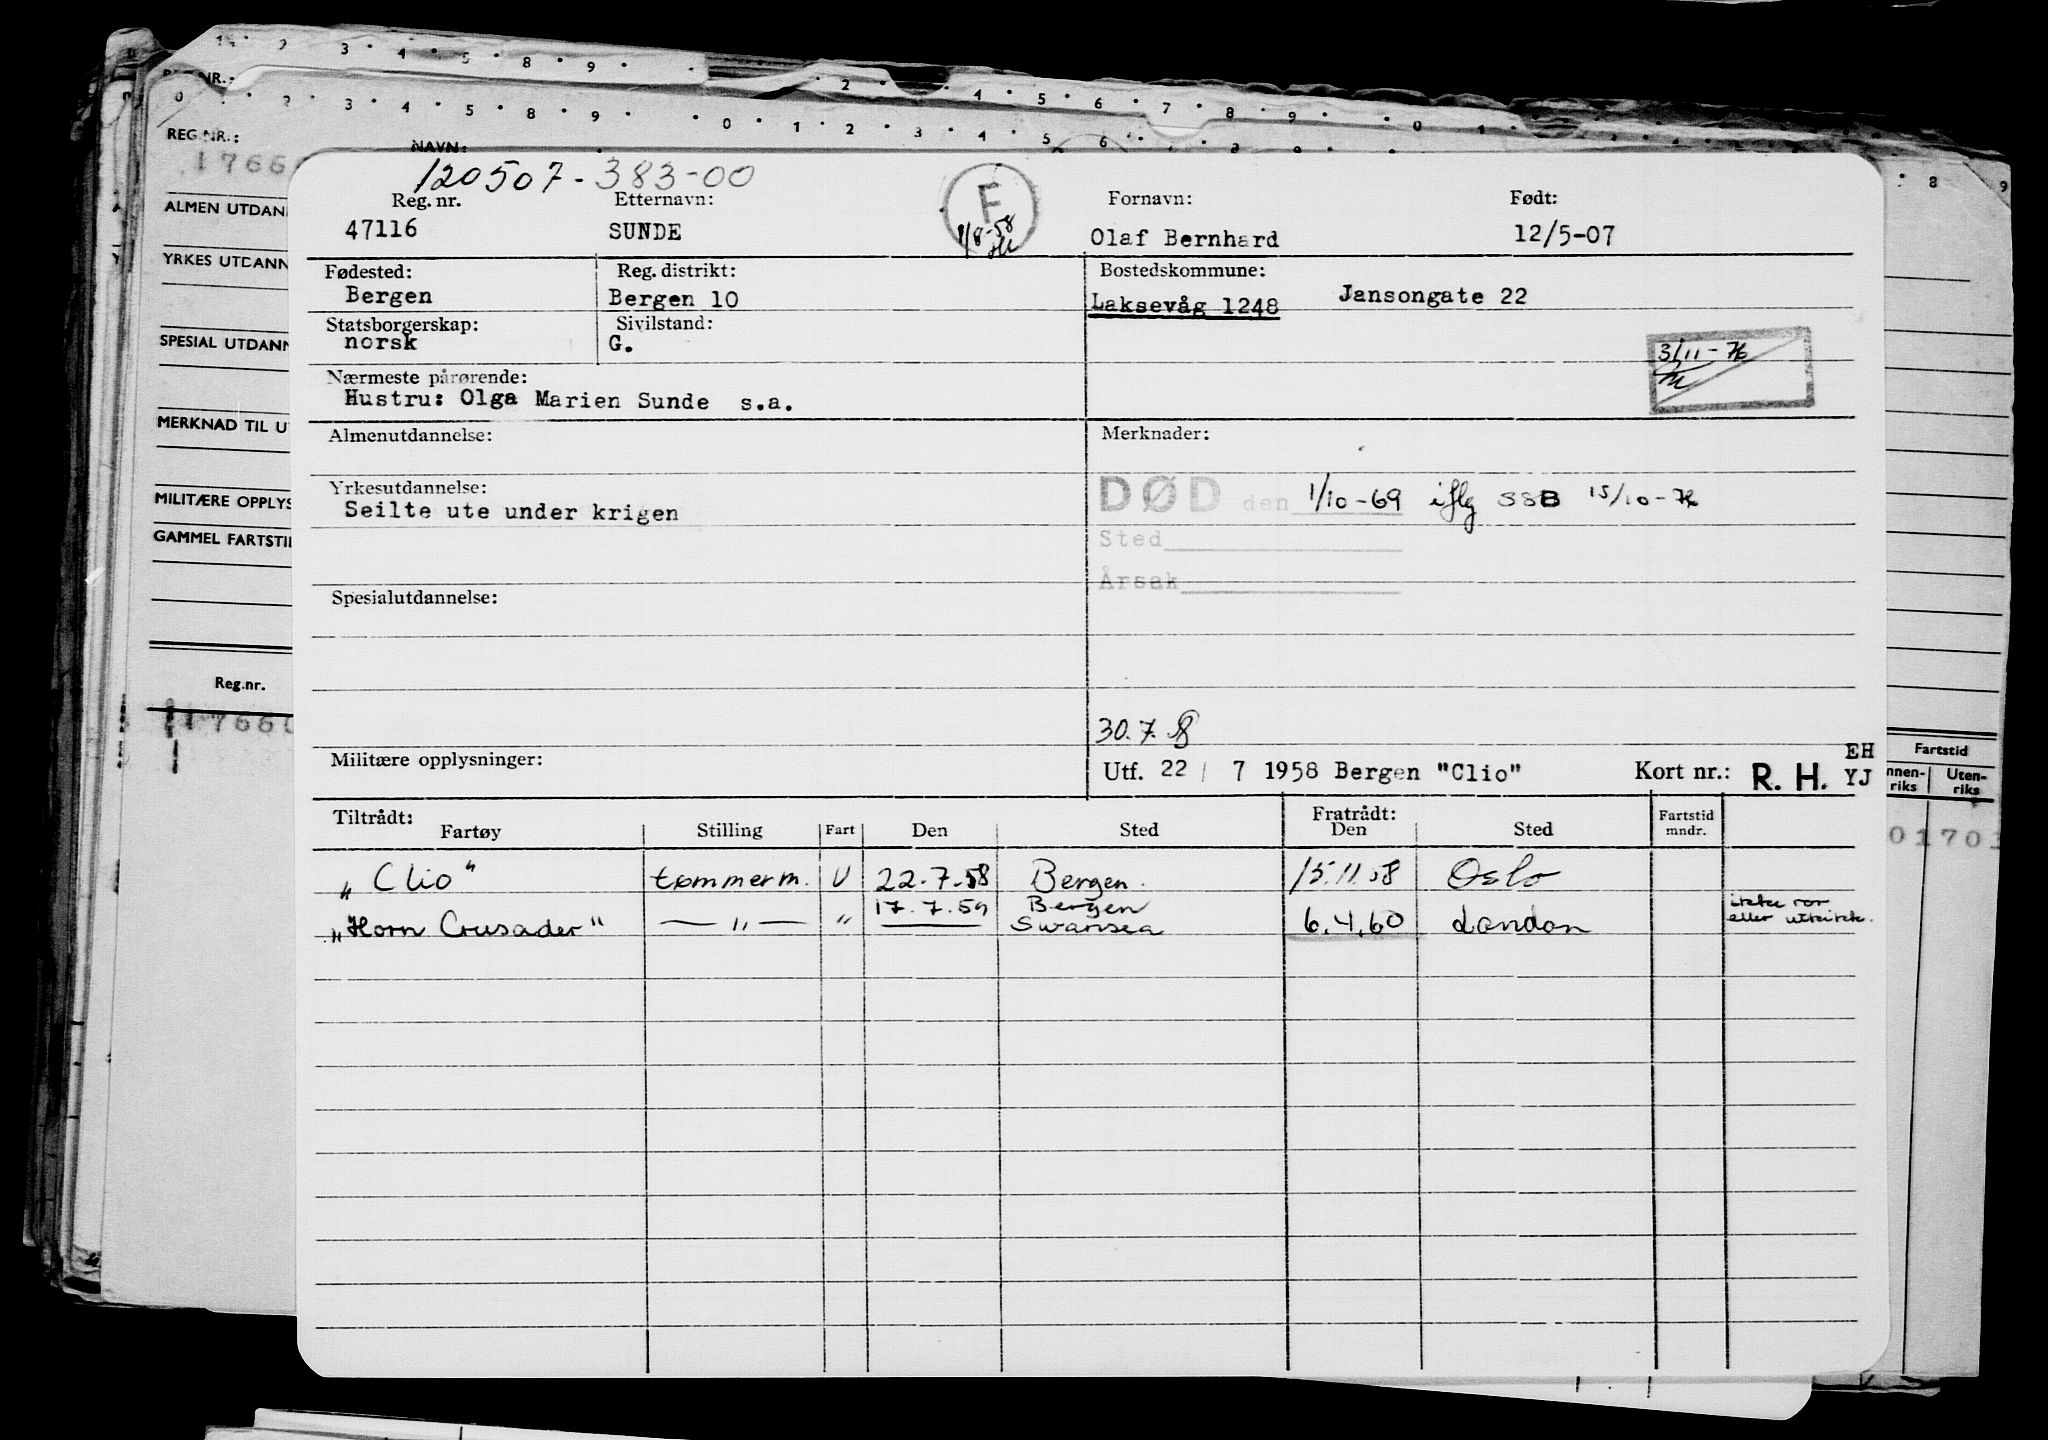 1 2 3 4 5 8 9
REG. NR.:
0 2 3 4 5 8 9 0 1 2 3 4 5 6 8 9
2 4 5 6 7 8 9 0 1
REG.NR.:
NAVN:
1766
ALMEN UTDAN
YRKES UTDANN
SPESIAL UTDANN
MERKNAD TIL U
MILITÆRE OPPLYS
GAMMEL FARTSTI
Reg.nr.
17660
120507-383-00
Reg. nr. Etternavn: Fornavn: Født:
47116 SUNDE F Olaf Bernhard 12/5-07
1/8-58
Fødested: Reg. distrikt: Bostedskommune:
Bergen Bergen 10 Laksevåg 1248 Jansongate 22
Statsborgerskap: Sivilstand:
norsk G.
3/11-76
Nærmeste pårørende:
Hustru: Olga Marien Sunde s.a.
Almenutdannelse: Merknader:
Yrkesutdannelse: DØD den 1/10-69 iflg SSB 15/10-76
Seilte ute under krigen
Sted
Årsak
Spesialutdannelse:
30.7.58
Militære opplysninger: Utf. 22 / 7 1958 Bergen "Clio" Kort nr.: R. H. EH
YJ
Fartstid
nnen-riks Uten-riks
01701
Tiltrådt: Fratrådt: Fartstid
Fartøy Stilling Fart Den Sted Den Sted mndr.
"Clio" tømmerm. U 22.7.58 Bergen. 15.11.58 Oslo
17.7.59 Bergen
"Horn Crusader" — " — " Swansea 6.4.60 London
ikke ror
eller utkikk.